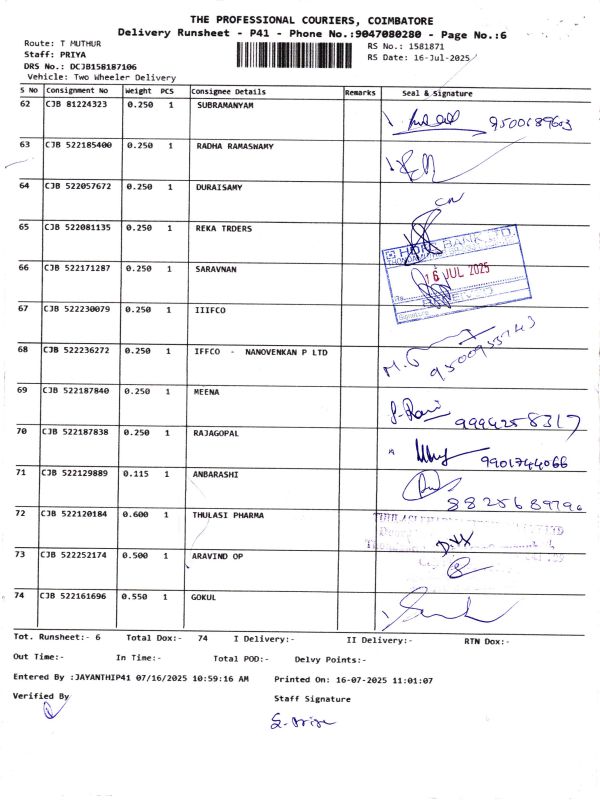 THE PROFESSIONAL COURIERS, COIMBATORE
Delivery Runsheet - P41 - Phone No.:9047080280 - Page No.:6
Route: T MUTHUR RS No.: 1581871
Staff: PRIYA RS Date: 16-Jul-2025
DRS No.: DCJB158187106
Vehicle: Two Wheeler Delivery
S No Consignment No Weight PCS Consignee Details Remarks Seal & Signature
62 CJB 81224323 0.250 1 SUBRAMANYAM 9500189603
63 CJB 522185400 0.250 1 RADHA RAMASWAMY
64 CJB 522057672 0.250 1 DURAISAMY
65 CJB 522081135 0.250 1 REKA TRDERS
HDFC BANK LTD.
66 CJB 522171287 0.250 1 SARAVNAN 16 JUL 2025
67 CJB 522230079 0.250 1 IIIFCO
68 CJB 522236272 0.250 1 IFFCO - NANOVENKAN P LTD
69 CJB 522187840 0.250 1 MEENA 9994258317
70 CJB 522187838 0.250 1 RAJAGOPAL 9901744066
71 CJB 522129889 0.115 1 ANBARASHI 8825689796
72 CJB 522120184 0.600 1 THULASI PHARMA
73 CJB 522252174 0.500 1 ARAVIND OP
74 CJB 522161696 0.550 1 GOKUL
Tot. Runsheet:- 6 Total Dox:- 74 I Delivery:- II Delivery:- RTN Dox:-
Out Time:- In Time:- Total POD:- Delvy Points:-
Entered By :JAYANTHIP41 07/16/2025 10:59:16 AM Printed On: 16-07-2025 11:01:07
Verified By Staff Signature